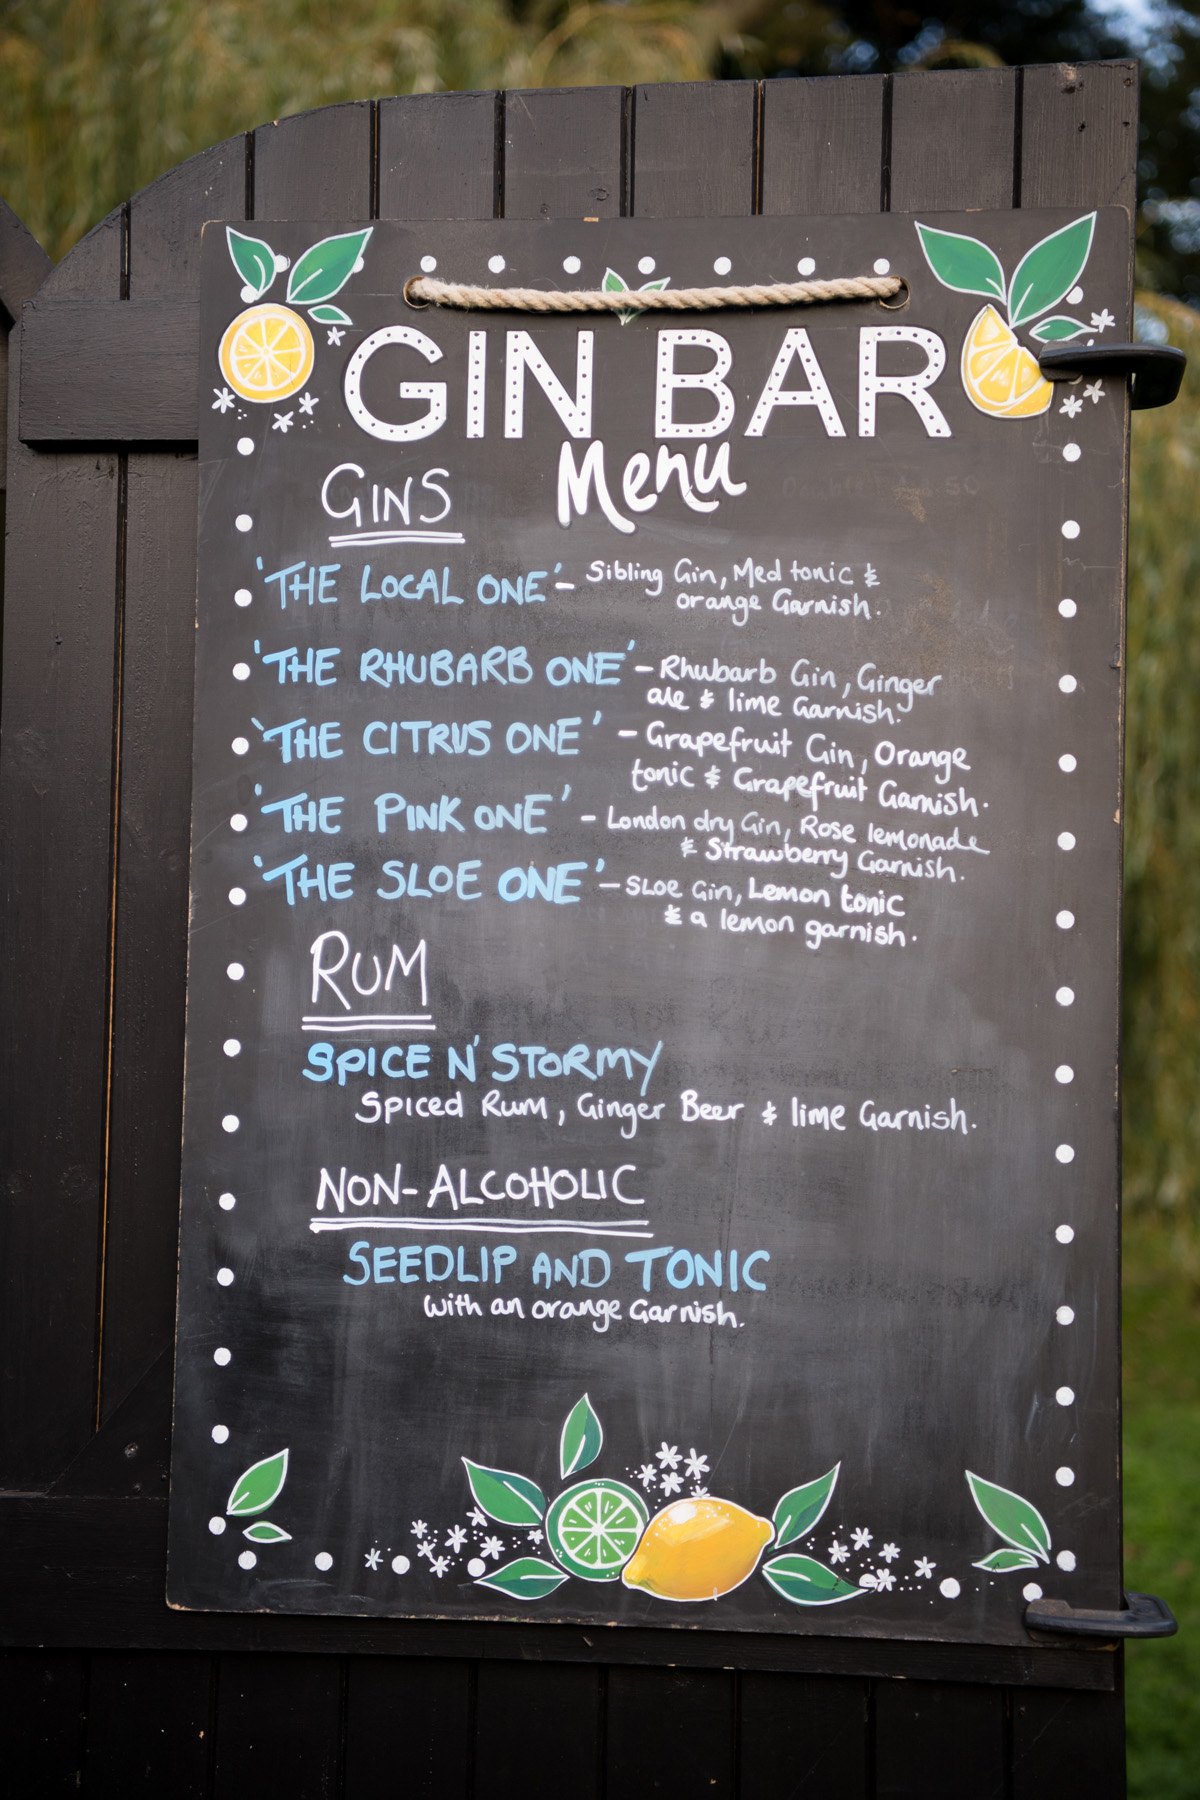 GIN BAR
Menu
GINS
'THE LOCAL ONE' - Sibling Gin, Med tonic &
orange Garnish.
'THE RHUBARB ONE' - Rhubarb Gin, Ginger
ale & lime Garnish.
'THE CITRUS ONE' - Grapefruit Gin, Orange
tonic & Grapefruit Garnish.
'THE PINK ONE' - London dry Gin, Rose lemonade
& Strawberry Garnish.
'THE SLOE ONE' - SLOE Gin, Lemon tonic
& a lemon garnish.
RUM
SPICE N' STORMY
Spiced Rum, Ginger Beer & lime Garnish.
NON-ALCOHOLIC
SEEDLIP AND TONIC
with an orange Garnish.